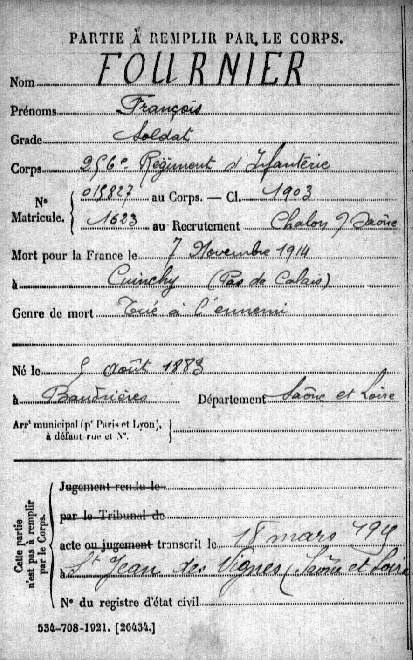 PARTIE À REMPLIR PAR LE CORPS.
Nom FOURNIER
Prénoms François
Grade Soldat
Corps 256e Régiment d'Infanterie
N° Matricule. { 015827 au Corps. — Cl. 1903
1623 au Recrutement Chalon s/ Saône
Mort pour la France le 7 Novembre 1914
à Cuinchy (Pas de Calais)
Genre de mort Tué à l'ennemi
Né le 5 août 1883
à Baudrières Département Saône et Loire
Arrt municipal (pr Paris et Lyon),
à défaut rue et N°.
Cette partie n'est pas à remplir par le Corps.
Jugement rendu le
par le Tribunal de
acte ou jugement transcrit le 18 mars
à St Jean des Vignes (Saône et Loire
N° du registre d'état civil
534-708-1921. [26434.]